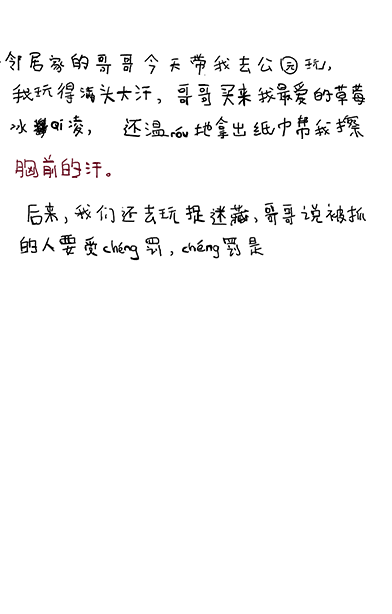 邻居家的哥哥今天带我去公园玩,
我玩得满头大汗,哥哥买来我最爱的草莓
冰qi凌, 还温róu地拿出纸巾帮我擦
胸前的汗。
后来,我们还去玩捉迷藏,哥哥说被抓
的人要受chéng罚,chéng罚是